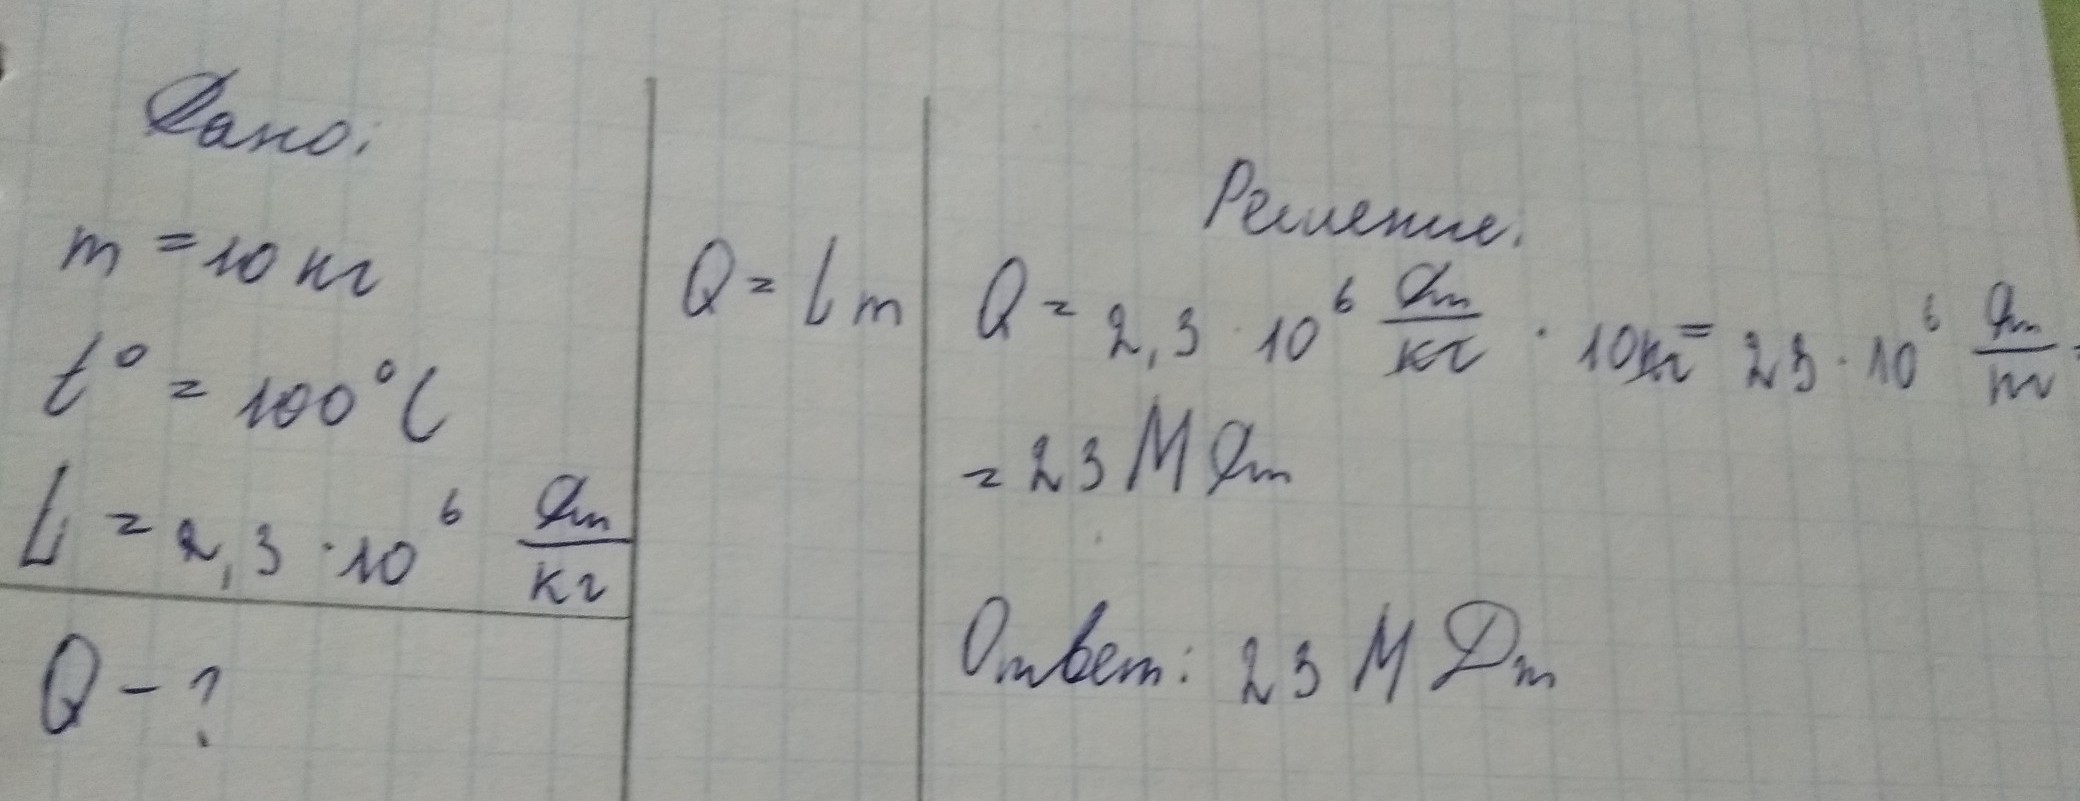 Дано:
m = 10 кг
t° = 100°C
L = 2,3 · 10⁶ Дж/кг
Q - ?
Q = Lm
Решение:
Q = 2,3 · 10⁶ Дж/кг · 10кг = 23 · 10⁶ Дж/кг =
= 23 М Дж
Ответ: 23 М Дж